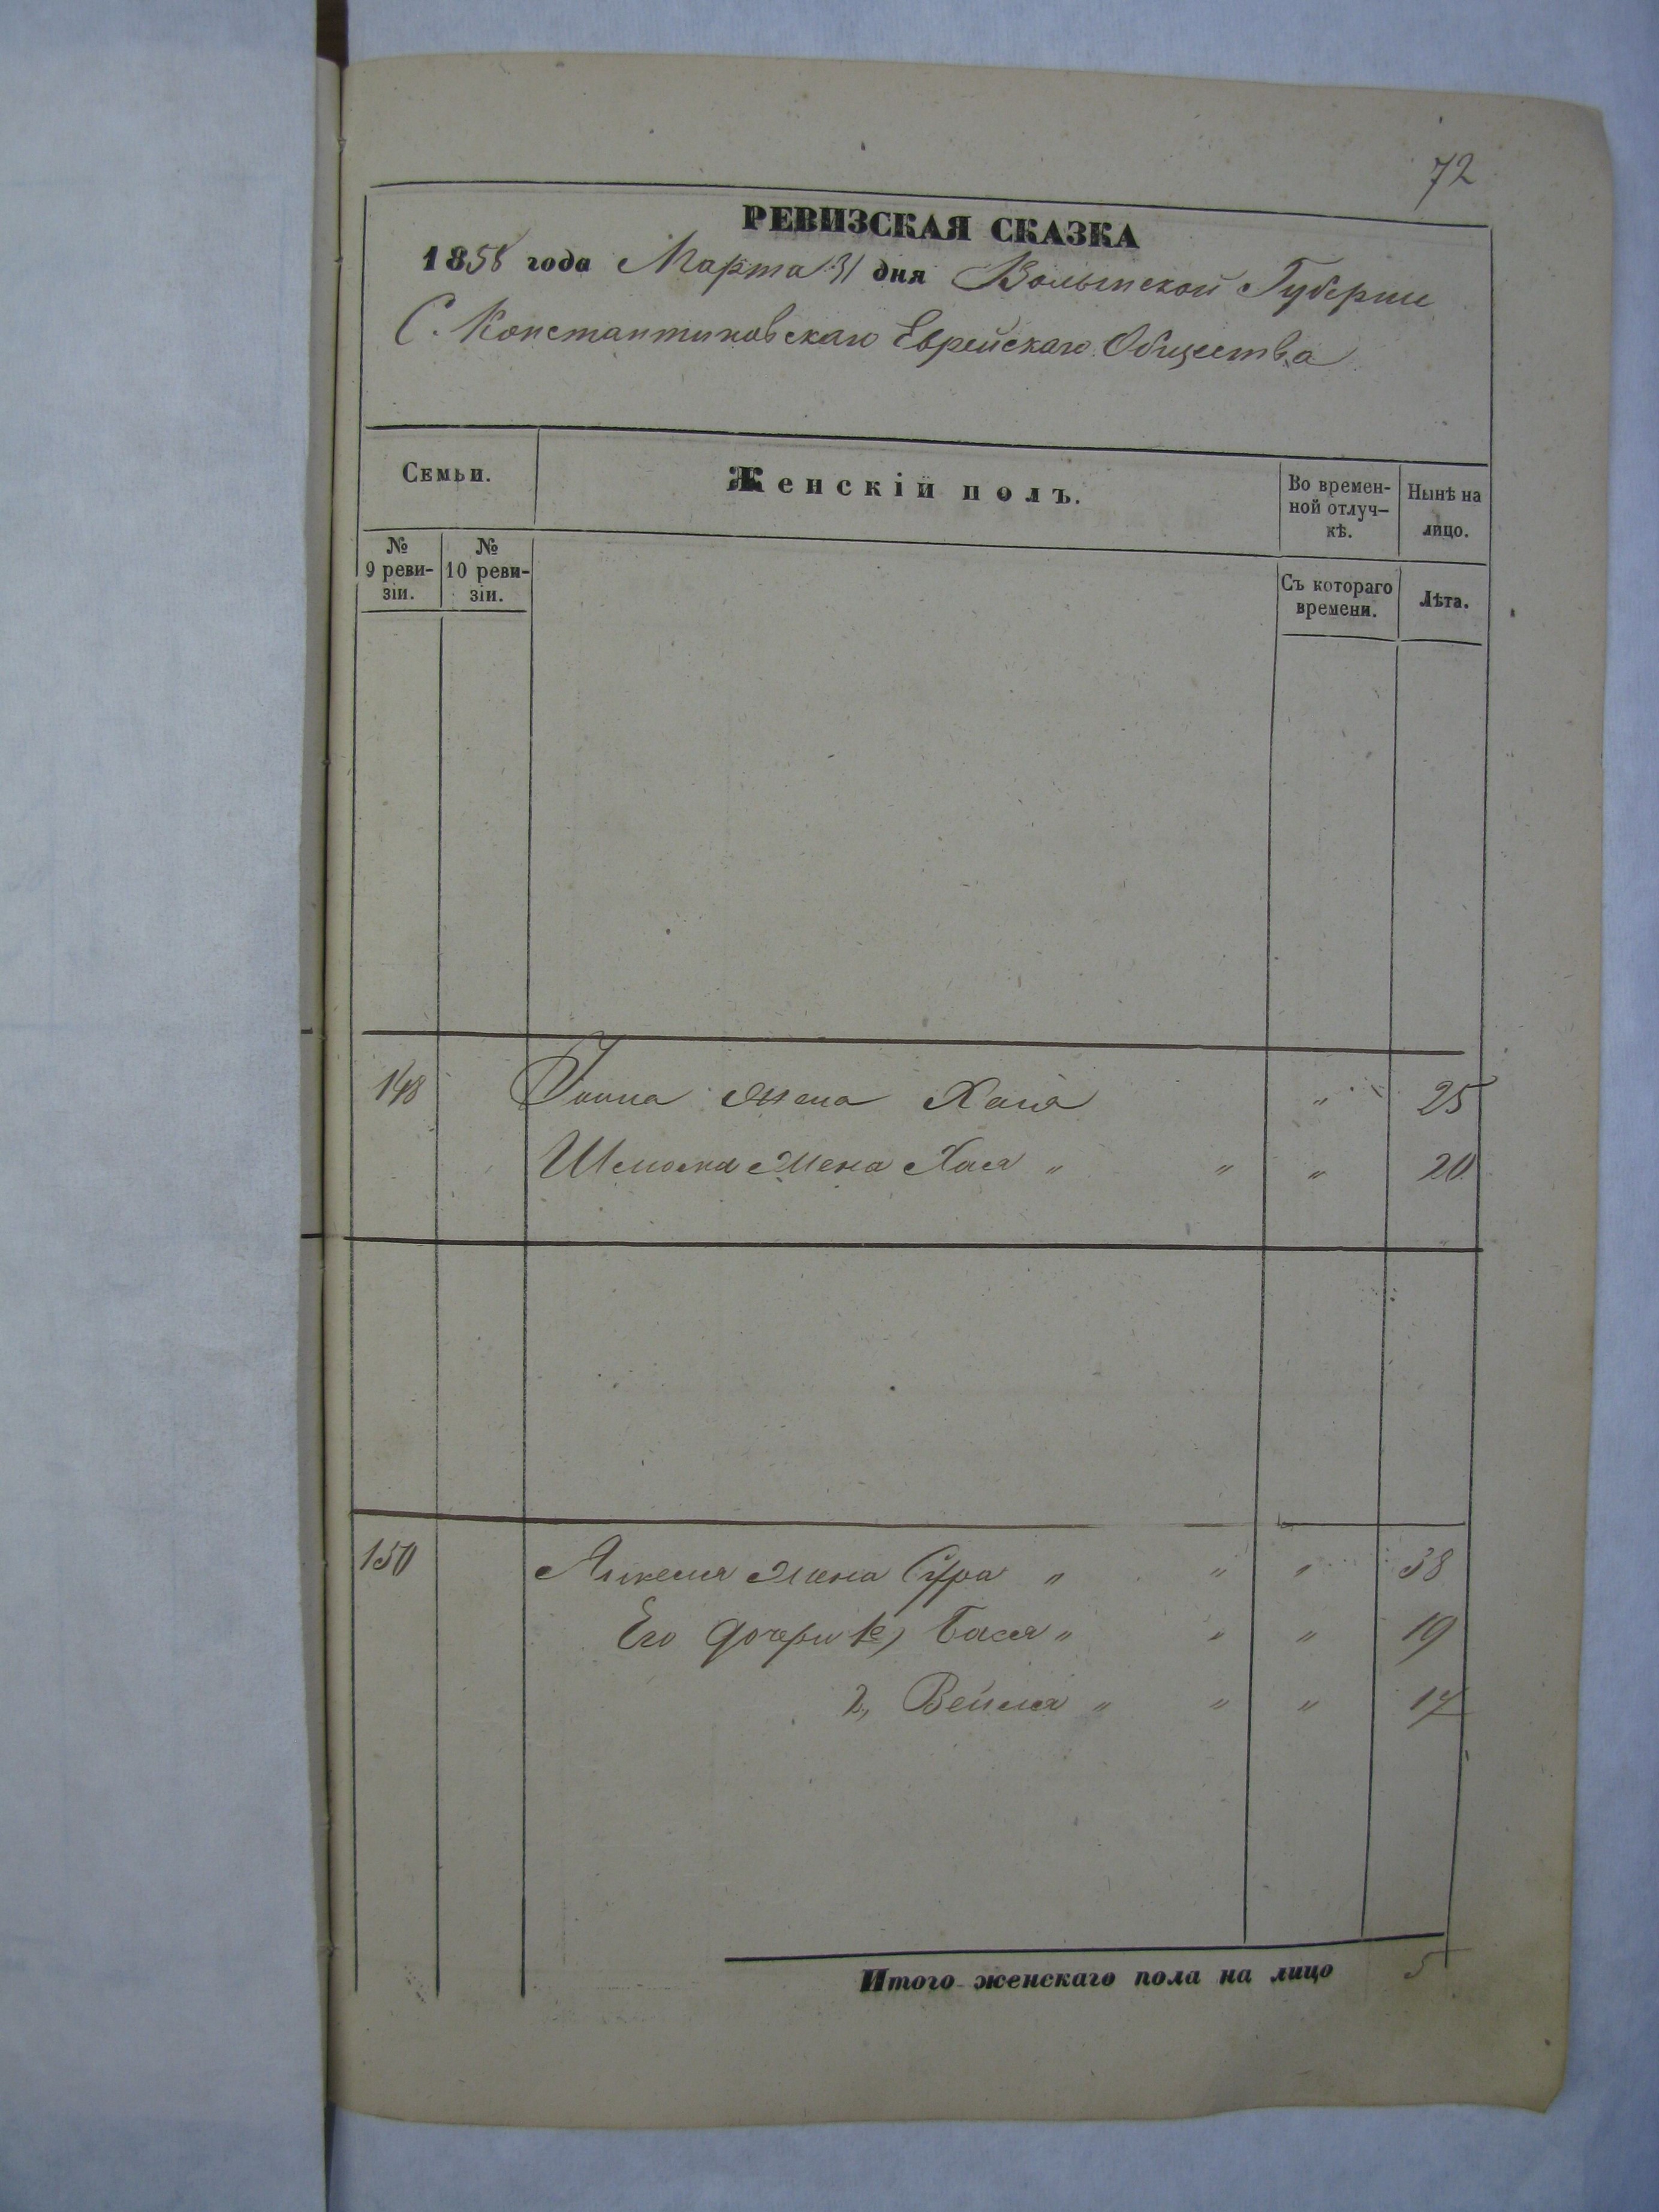 72
РЕВИЗСКАЯ СКАЗКА
1858 года Марта 31 дня Волынской Губерніи
С. Константиновскаго Еврейскаго Общества
Семьи.
Женскій полъ.
Во времен-
ной отлуч-
кѣ.
Нынѣ на
лицо.
№
9 реви-
зіи.
№
10 реви-
зіи.
Съ котораго
времени.
Лѣта.
148 жена Хая " 25
Шмелька жена Хася " " " 20
150 Янкеля жена Сура " " " 38
Его дочери 1е, Бася " " " 19
2, Вейля " " " 17
Итого женскаго пола на лицо 5